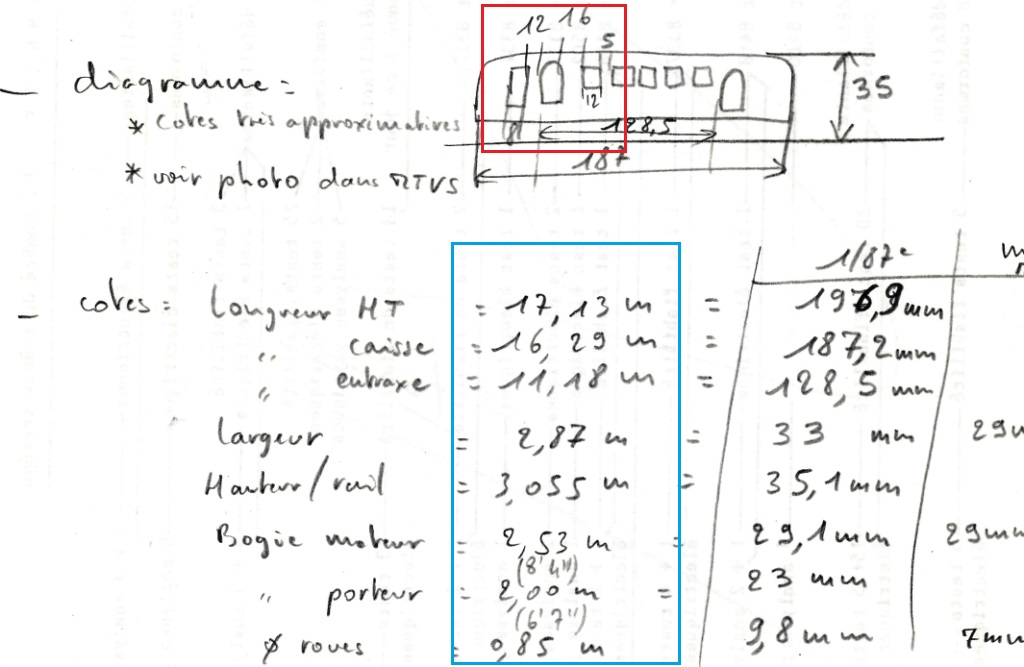 12 16
5
— diagramme =
35
* cotes très approximatives
12
8
128,5
187
* voir photo dans RTVS
1/87e
— cotes = Longueur HT = 17,13 m = 196,9 mm
" caisse = 16,29 m = 187,2 mm
" entraxe = 11,18 m = 128,5 mm
largeur = 2,87 m = 33 mm 29m
Hauteur/rail = 3,055 m = 35,1 mm
Bogie moteur = 2,53 m = 29,1 mm 29mm
(8'4")
" porteur = 2,00 m = 23 mm
(6'7")
Ø roues = 0,85 m 9,8 mm 7mm